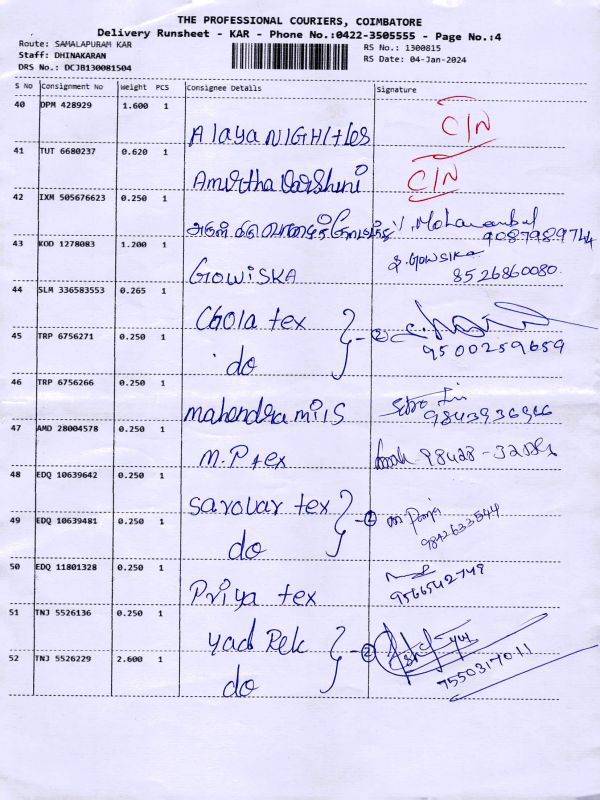 THE PROFESSIONAL COURIERS, COIMBATORE
Delivery Runsheet - KAR - Phone No.:0422-3505555 - Page No.:4
Route: SAMALAPURAM KAR
RS No.: 1300815
Staff: DHINAKARAN
RS Date: 04-Jan-2024
DRS No.: DCJB130081504
S No Consignment No Weight PCS Consignee Details Signature
40 DPM 428929 1.600 1
Alaya NIGHTIes C/N
41 TUT 6680237 0.620 1
Amirtha Varshini C/N
42 IXM 505676623 0.250 1
Mohanambal
9087989744
43 KOD 1278083 1.200 1
S.GOWSIKA
GOWiSKA 8526860080
44 SLM 336583553 0.265 1
Chola tex 2
45 TRP 6756271 0.250 1
9500259659
do
46 TRP 6756266 0.250 1
mahendra mills
47 AMD 28004578 0.250 1
M.P tex 98428-
48 EDQ 10639642 0.250 1
Sarovar tex 2 Pooja
49 EDQ 10639481 0.250 1
9842633544
do
50 EDQ 11801328 0.250 1
Priya tex 9566542749
51 TNJ 5526136 0.250 1
2
52 TNJ 5526229 2.600 1
7550317011
do